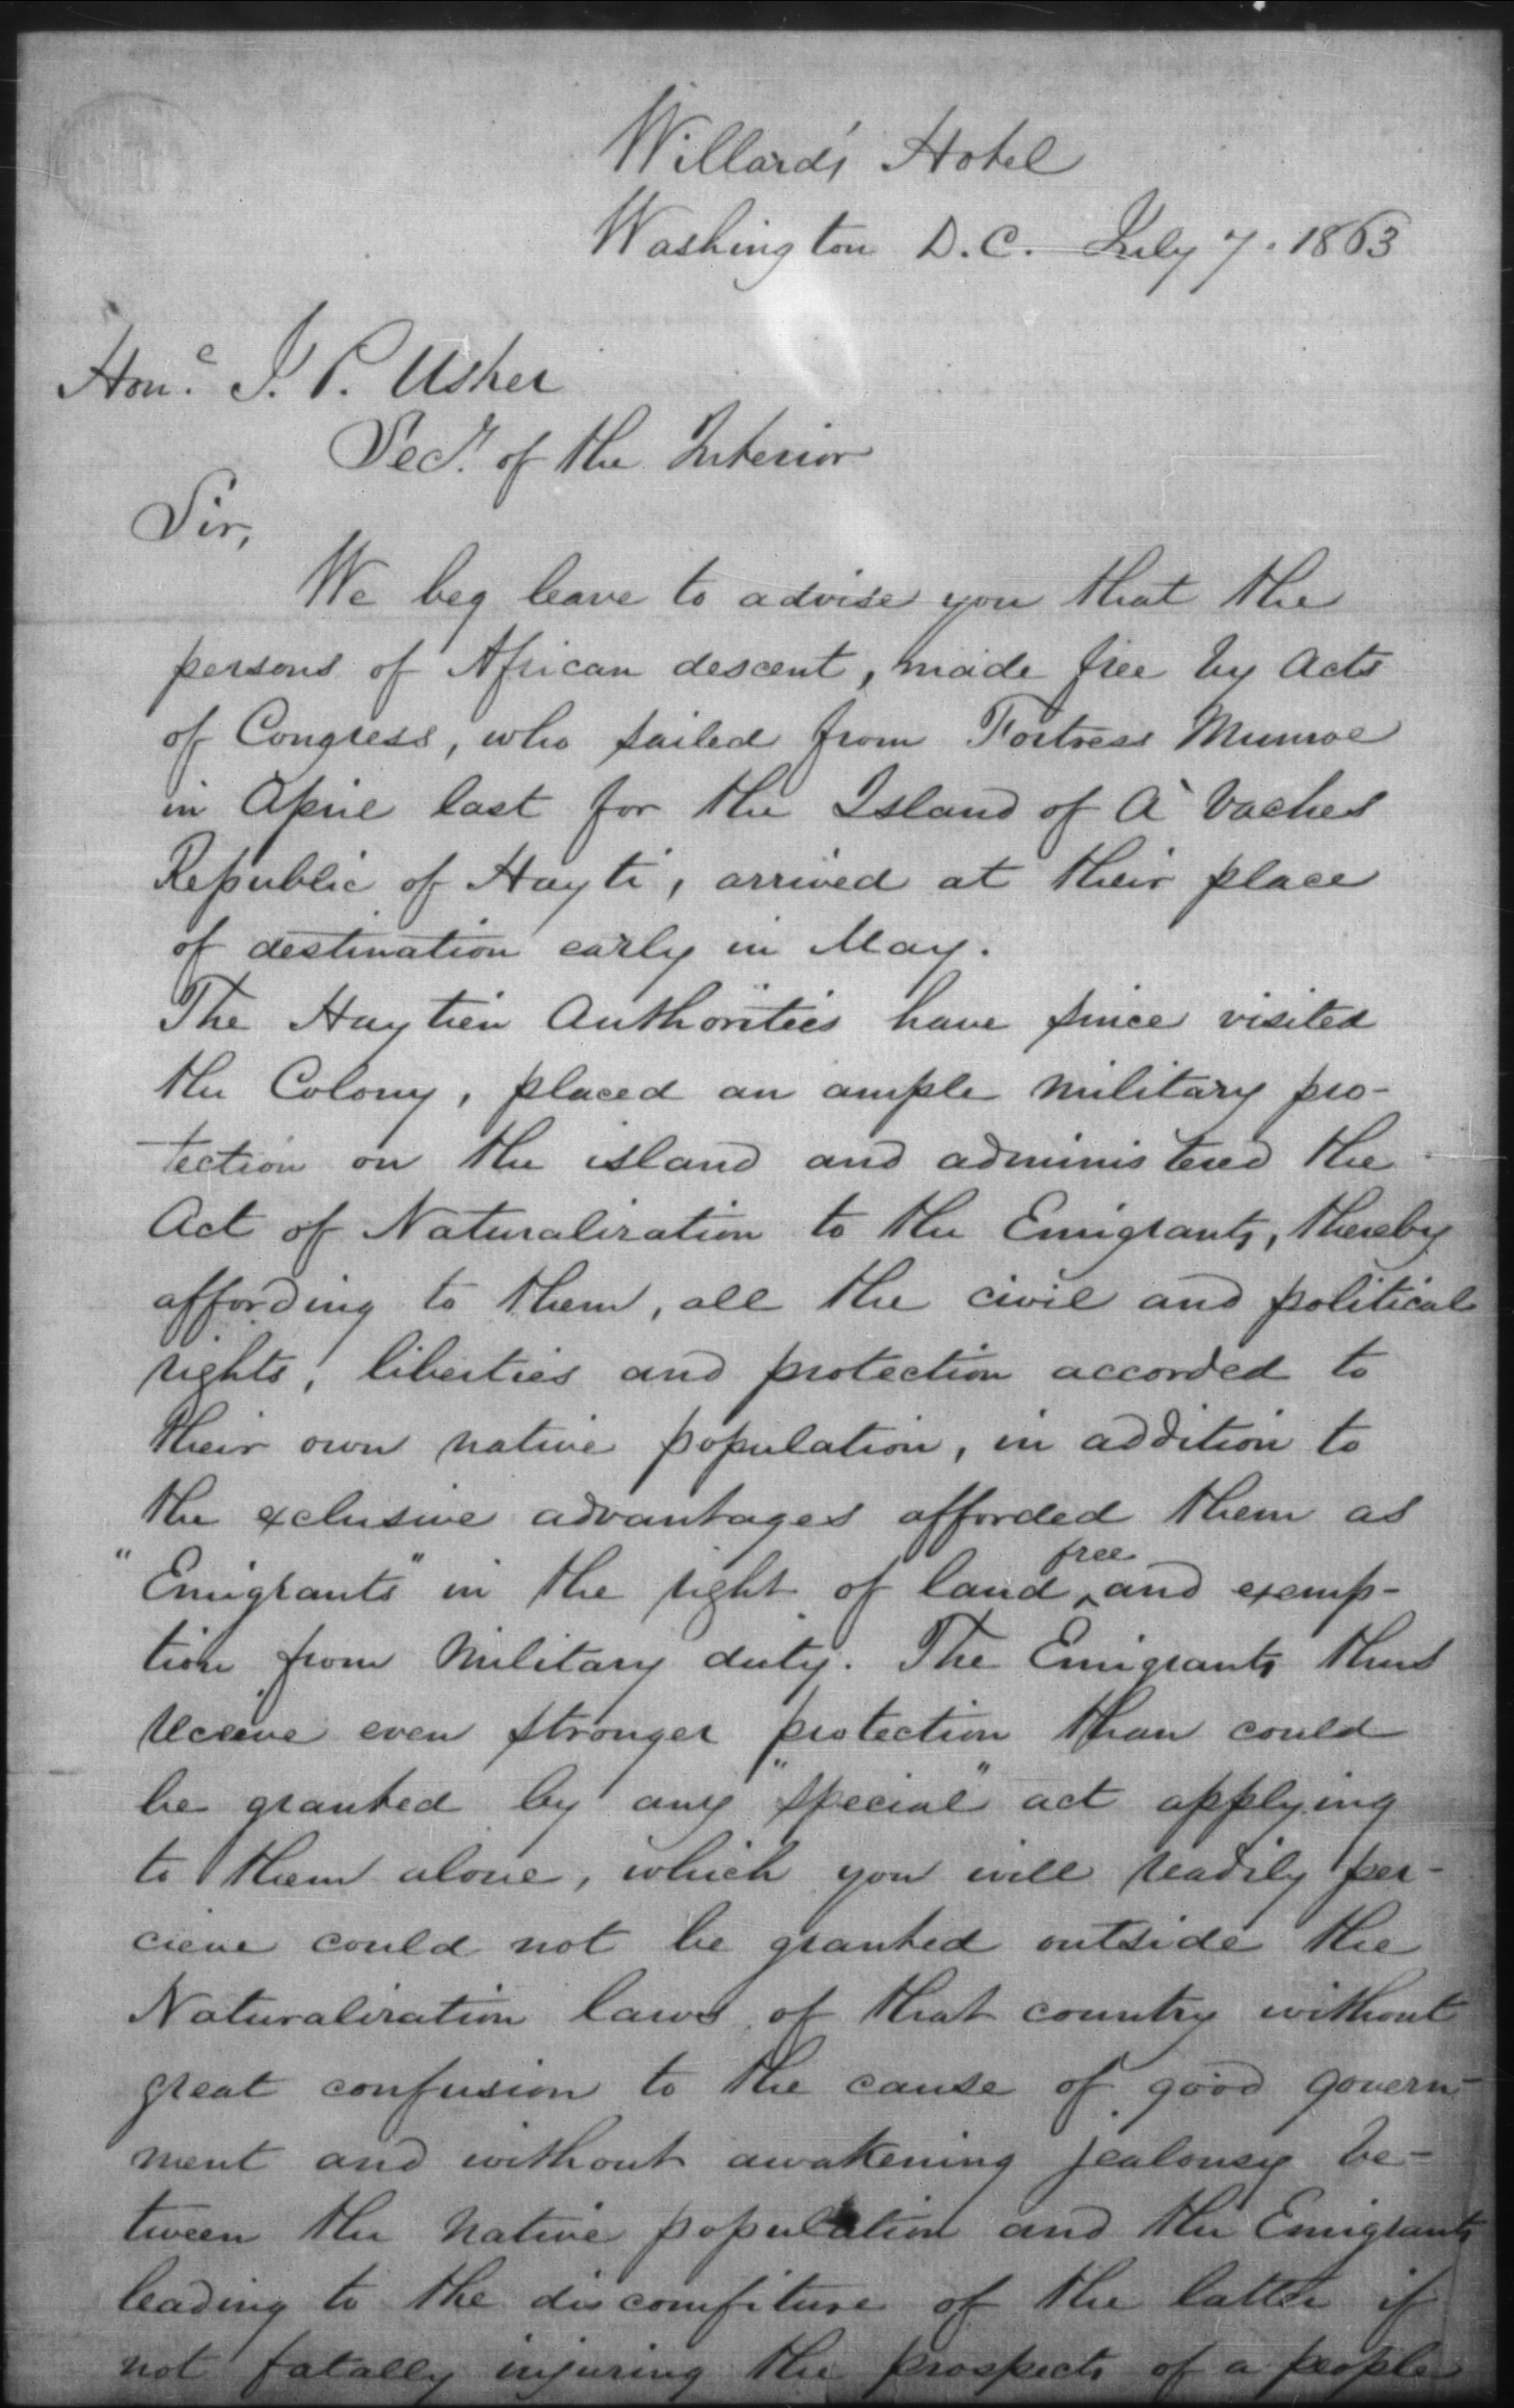 Willard's Hotel
Washington D.C. July 7. 1863
Hon.e J. P. Usher
Sec.y of the Interior
Sir,
We beg leave to advise you that the
persons of African descent, made free by Acts
of Congress, who sailed from Fortress Munroe
in April last for the Island of A' Vaches
Republic of Hayti, arrived at their place
of destination early in May.
The Haytien Authorities have since visited
the Colony, placed an ample military pro-
tection on the island and administered the
Act of Naturalization to the Emigrants, thereby
affording to them, all the civil and political
rights, liberties and protection accorded to
their own native population, in addition to
the exclusive advantages afforded them as
"Emigrants" in the right of land ^free and exemp-
tion from military duty. The Emigrants thus
receive even stronger protection than could
be granted by any "special" act applying
to them alone, which you will readily per-
cieve could not be granted outside the
Naturalization laws of that country without
great confusion to the cause of good govern-
ment and without awakening jealousy be-
tween the native population and the Emigrants
leading to the discomfiture of the latter if
not fatally injuring the prospects of a people